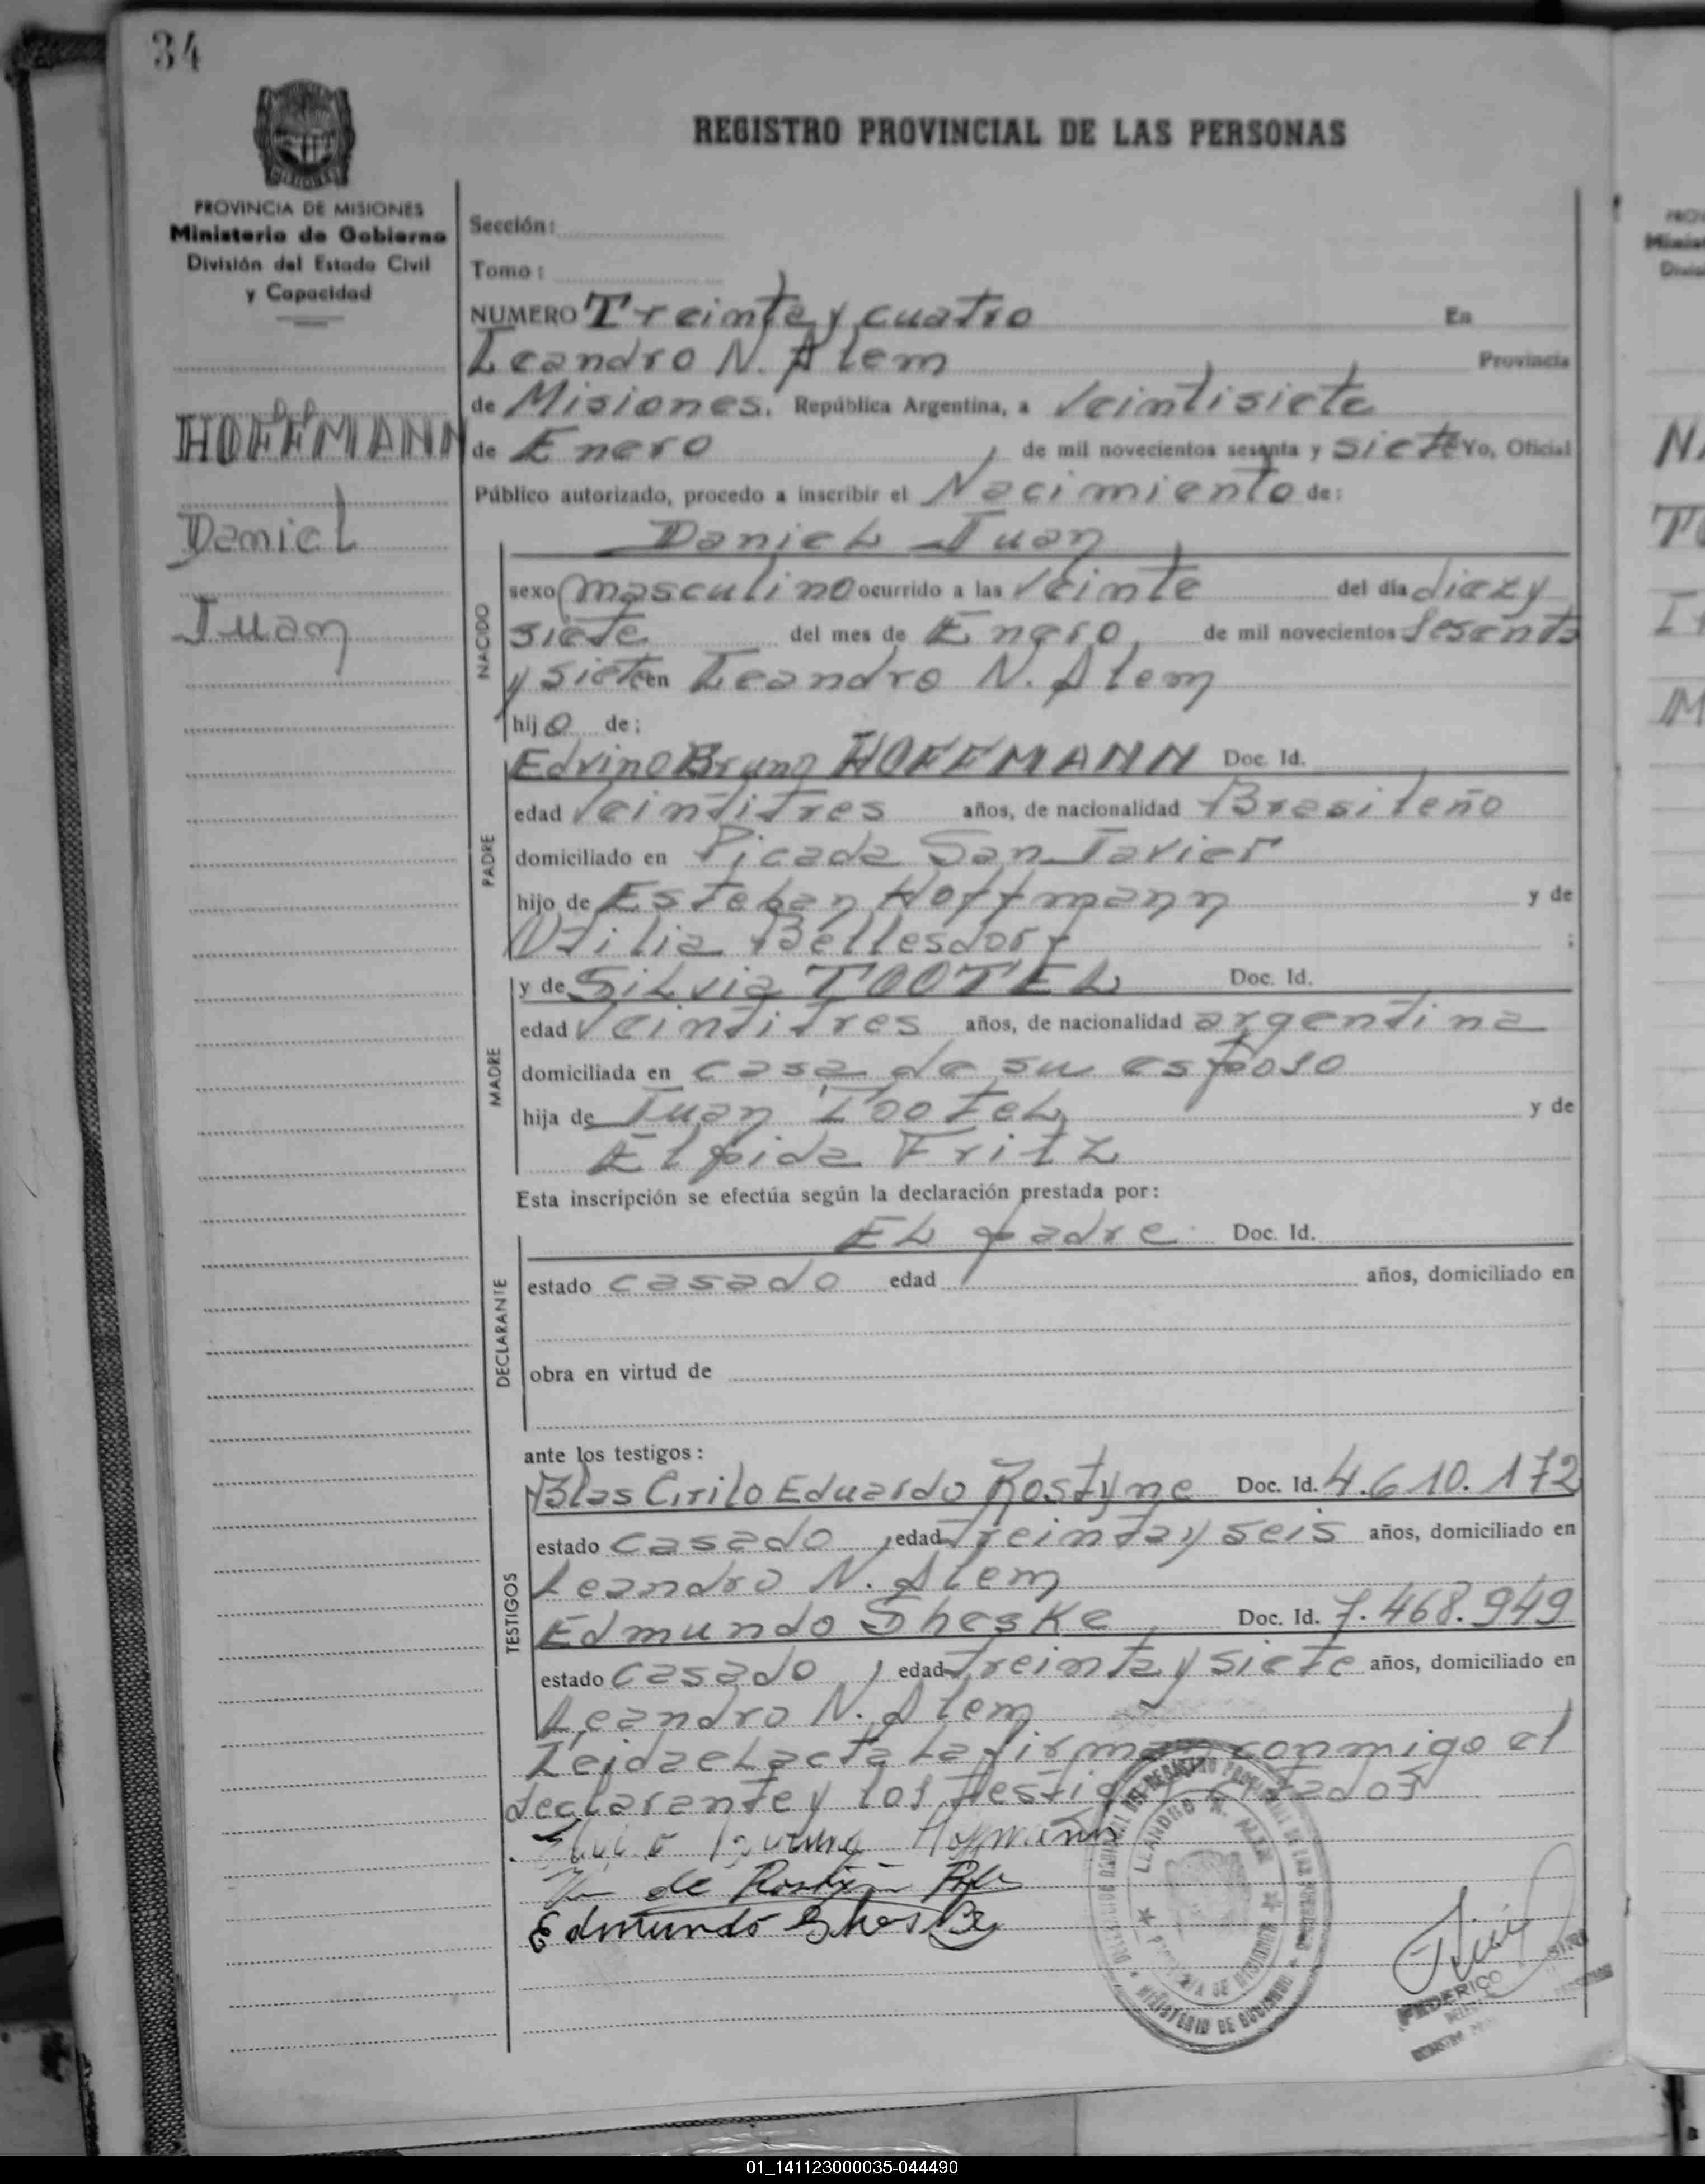 34
REGISTRO PROVINCIAL DE LAS PERSONAS
PROVINCIA DE MISIONES
Ministerio de Gobierno
División del Estado Civil
y Capacidad
HOFFMANN
Daniel
Juan
Sección:
Tomo:
NUMERO Treinta y cuatro En
Leandro N. Alem Provincia
de Misiones. República Argentina, a Veintisiete
de Enero, de mil novecientos sesenta y siete Yo, Oficial
Público autorizado, procedo a inscribir el Nacimiento de:
Daniel Juan
NACIDO
sexo masculino ocurrido a las Veinte del día diez y
siete del mes de Enero, de mil novecientos sesenta
y siete en Leandro N. Alem
hijo de;
PADRE
Edvino Bruno HOFFMANN Doc. Id.
edad Veintitres años, de nacionalidad Brasileño
domiciliado en Picada San Javier
hijo de Esteban Hoffmann y de
Ntilia Bellesdorf ;
MADRE
y de Silvia TOOTEL Doc. Id.
edad Veintitres años, de nacionalidad argentina
domiciliada en casa de su esposo
hija de Juan Tootel y de
Elpida Fritz
Esta inscripción se efectúa según la declaración prestada por:
DECLARANTE
El padre Doc. Id.
estado casado edad años, domiciliado en
obra en virtud de
ante los testigos:
TESTIGOS
Blas Cirilo Eduardo Rostyne Doc. Id. 4.610.172
estado casado, edad treinta y seis años, domiciliado en
Leandro N. Alem
Edmundo Sheske Doc. Id. 7.468.949
estado casado, edad treinta y siete años, domiciliado en
Leandro N. Alem
Leida el acta la firman conmigo el
declarante y los testigos citados
Hoffmann
de Rostyne
Edmundo Sheske
LEANDRO N. ALEM
PROVINCIA DE MISIONES
MINISTERIO DE GOBIERNO
FEDERICO
01_141123000035-044490